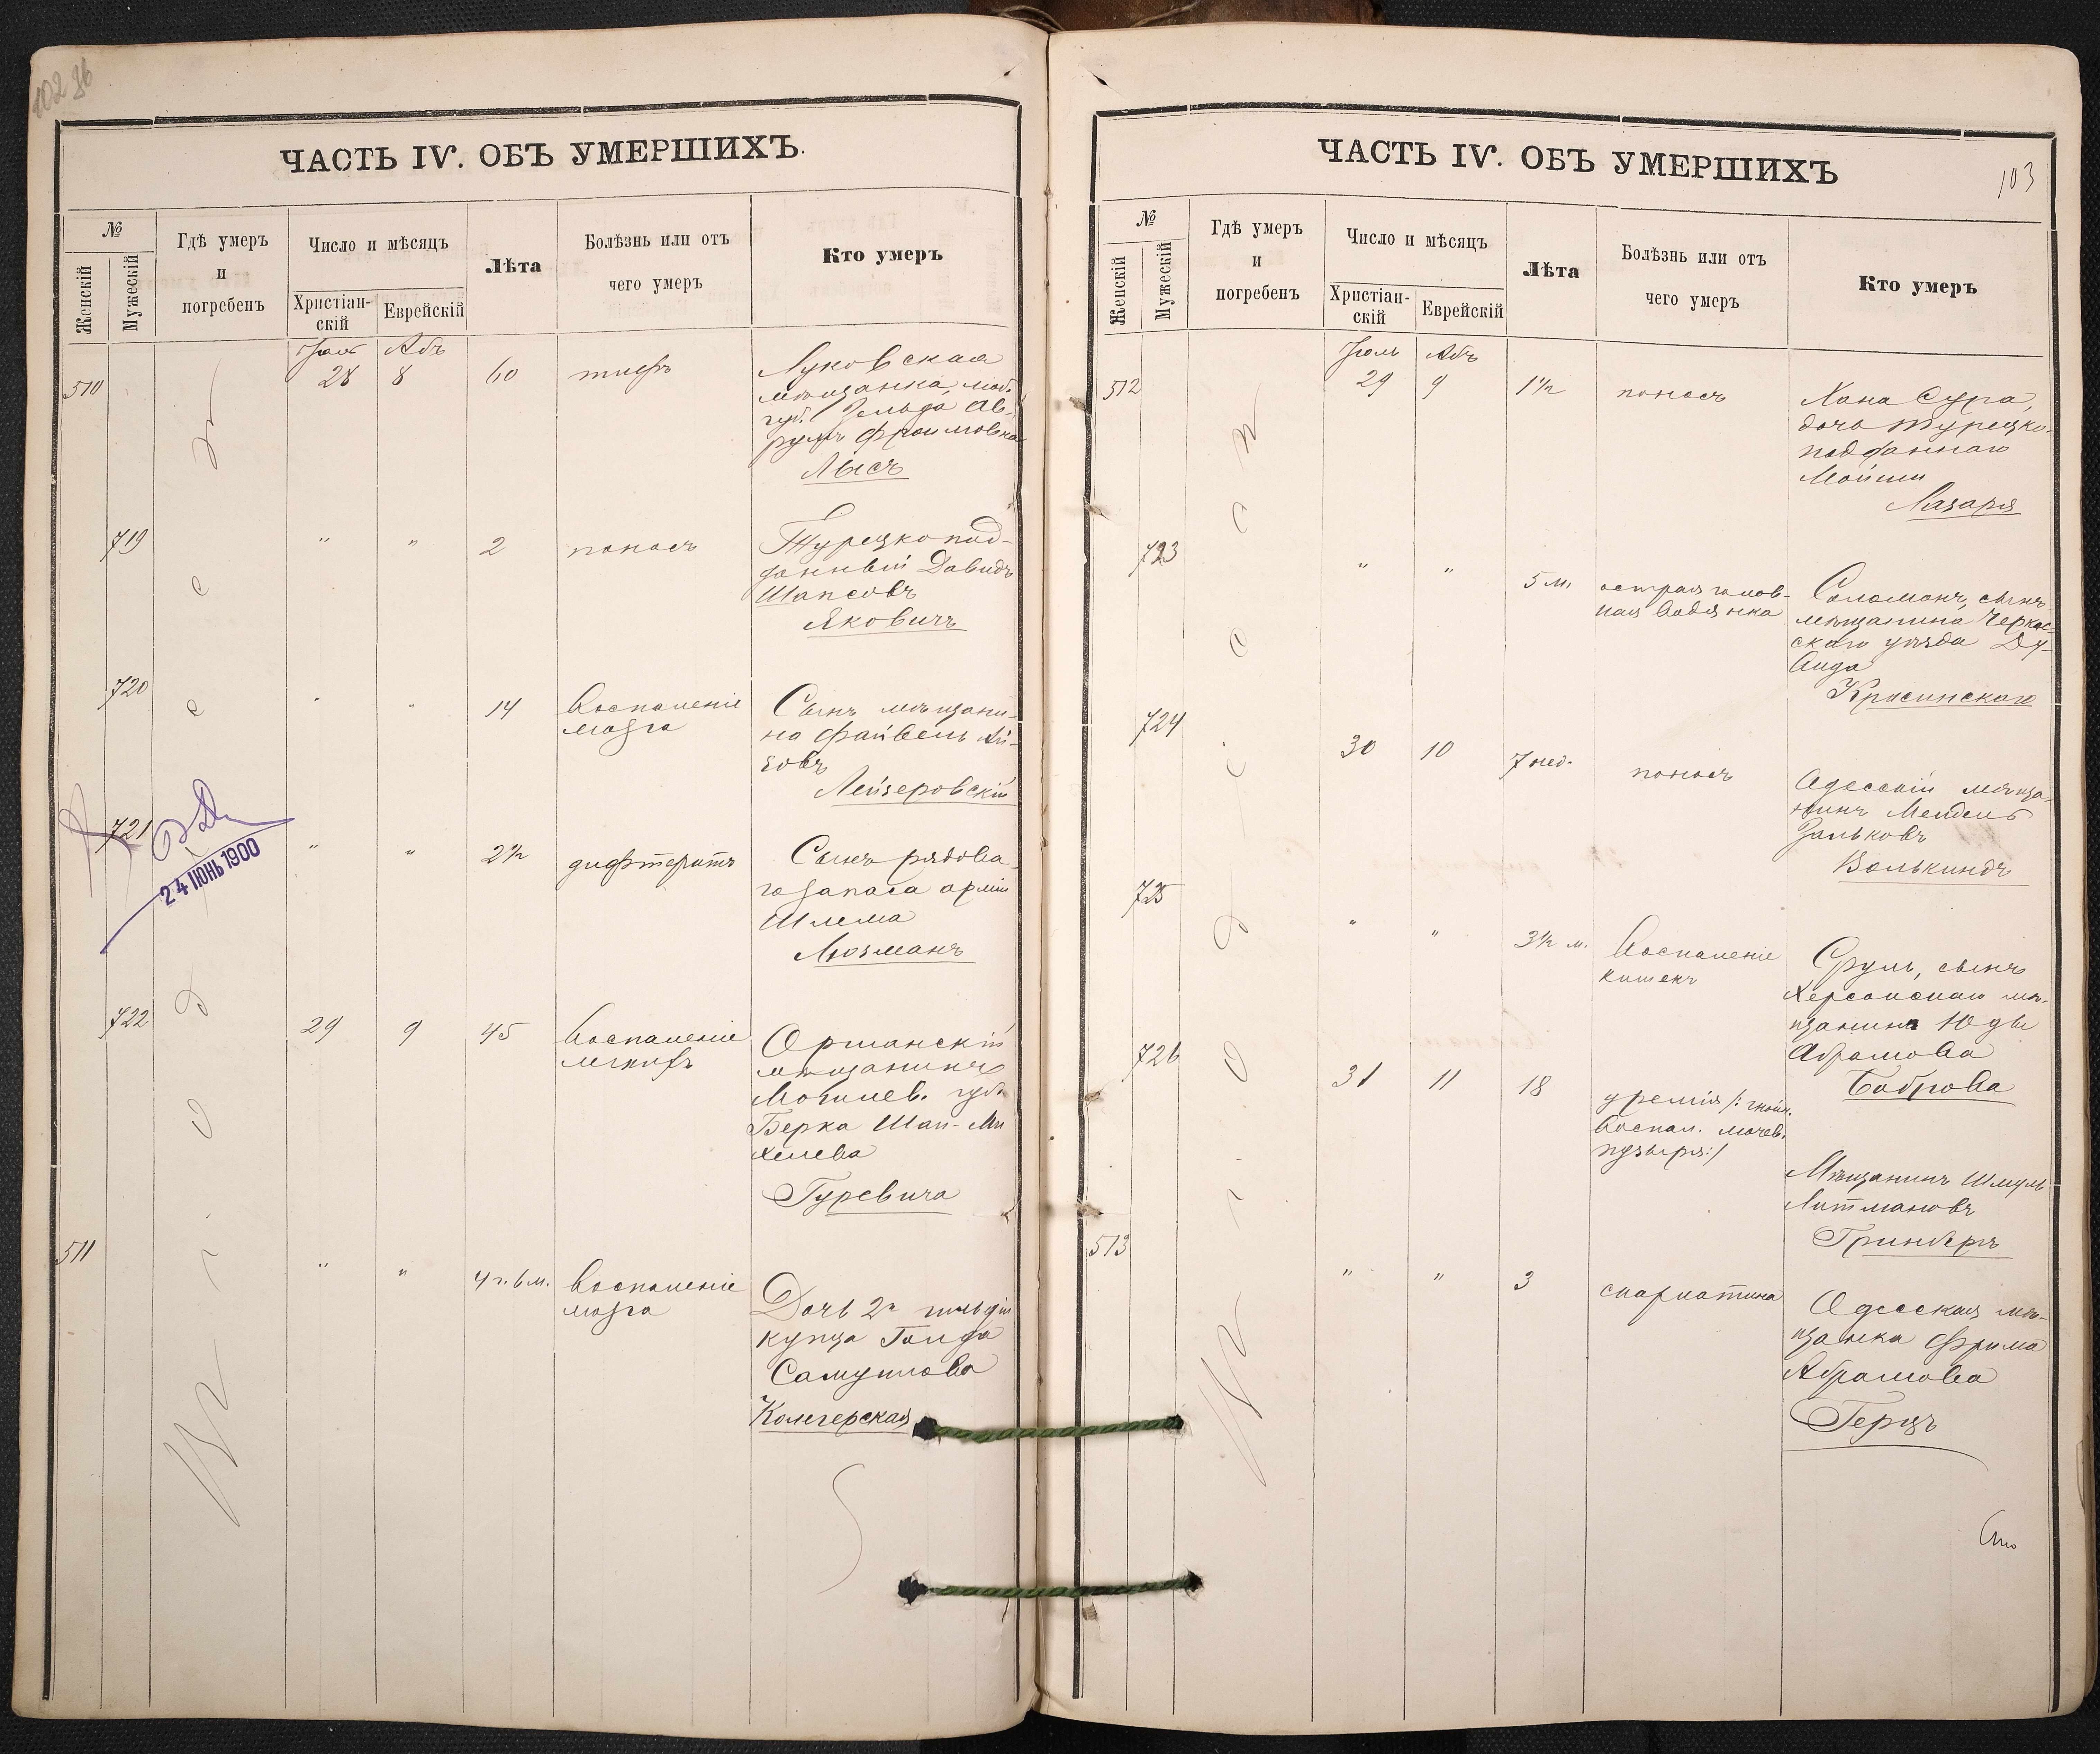 102 зв
ЧАСТЬ IV. ОБЪ УМЕРШИХЪ.
№
Женскій
Мужескій
Гдѣ умеръ
и
погребенъ
Число и мѣсяцъ
Христіан-
скій
Еврейскій
Лѣта
Болѣзнь или отъ
чего умеръ
Кто умеръ
510
Іюля Абъ
28 8 60 тифъ
Луковская
мѣщанка,
губ. Зельда Ав-
румъ Фроимовна
Лысъ
719 " " 2 поносъ
Турецкопод-
данный Давидъ
Шапсовъ
Яковичъ
720 " " 14 воспаленіе
мозга
Сынъ мѣщани-
на Файвель Ай-
зовъ
Лейзеровскій
721 " " 2½ дифтеритъ
24 ІЮНЬ 1900
Сынъ рядова-
го запаса арміи
Шлема
Мозманъ
722 29 9 45 воспаленіе
легкихъ
Оршанскій
мѣщанинъ
Могилев. губ.
Берка Шай-Ми
хелева
Гуревича
511 " " 4 г. 6 м. воспаленіе
мозга
Дочь 2й гильдіи
купца Голда
Самуилова
Колчерская
Въ г. Одессѣ
ЧАСТЬ IV. ОБЪ УМЕРШИХЪ
103
№
Женскій
Мужескій
Гдѣ умеръ
и
погребенъ
Число и мѣсяцъ
Христіан-
скій
Еврейскій
Лѣта
Болѣзнь или отъ
чего умеръ
Кто умеръ
512
Іюль Абъ
29 9 1½ поносъ
Хана Сура,
дочь турецко-
подданнаго
Мойши
Лазаря
723 " " 5 м. острая голов-
ная водянка
Соломонъ, сынъ
мѣщанина Черкас-
скаго уѣзда Ду-
вида
Красинскаго
724 30 10 7 нед. поносъ
Одесскій мѣща-
нинъ Мендель
Зальковъ
Волькиндъ
725 " " 3½ м. воспаленіе
кишекъ
Сруль, сынъ
Херсонскаго мѣ-
щанина Юды
Абрамова
Боброва
726 31 11 18 уремія /: гнойн.
воспал. мочев.
пузыря :/
Мѣщанинъ Шмуль
Литмановъ
Гринбергъ
513 " " 3 скарлатина
Одесская мѣ-
щанка Фрима
Абрамова
Герцъ
Въ г. Одессѣ